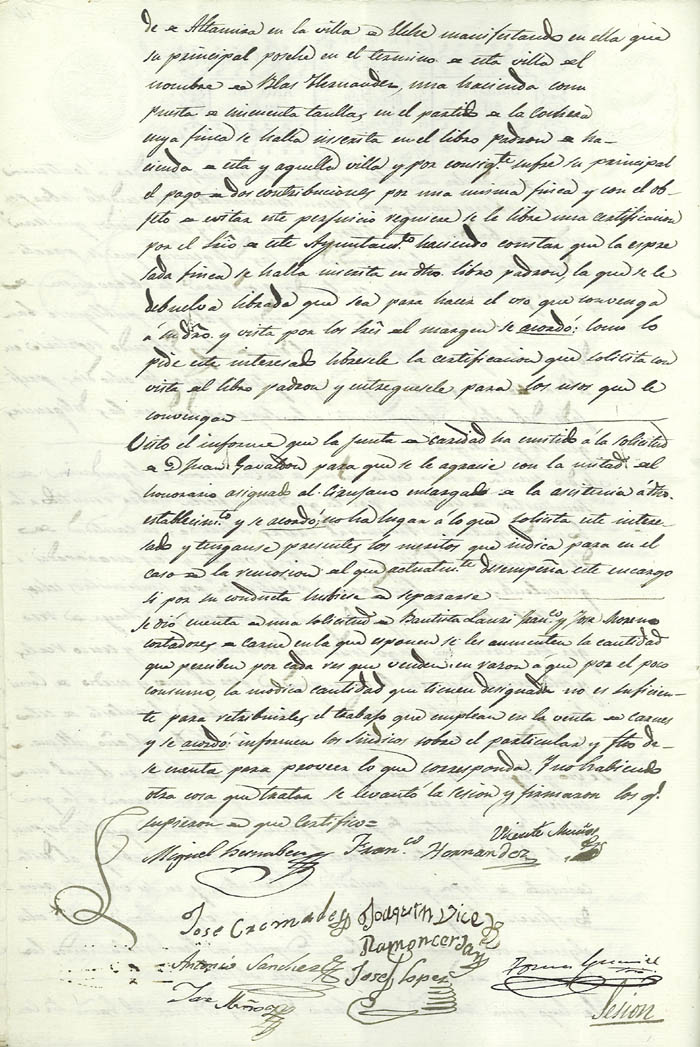 de Altamira en la villa de Elche manifestando en ella que
su principal posehe en el termino de esta villa del
nombre de Blas Hernandez, una hacienda com
puesta de cincuenta taullas en el partido de la
cuya finca se halla inscrita en el libro padron de ha-
cienda de esta y aquella villa y por consigte sufre su principal
el pago de dos contribuciones por una misma finca y con el ob-
jeto de evitar este perjuicio requiere se le libre una certificacion
por el Srio de este Ayuntamto haciendo constar que la espre
sada finca se halla inscrita en dho. libro padron, la que se le
debuelva librada que sea para hacer el uso que convenga
á su dro. y vista por los Sres del margen se acordó: Como lo
pide este interesado libresele la certificacion que solicita con
vista del libro padron y entreguesele para los usos que le
convengan
Visto el informe que la Junta de caridad ha emitido á la solicitud
de D Juan Gavaldon para que se le agracie con la mitad del
honorario asignado al Cirujano encargado de la asistencia á dho.
establecimto y se acordó; no ha lugar á lo que solicita este intere-
sado y tengase presentes los meritos que indica para en el
caso de la remosion del que actualmte desempeña este encargo
si por su conducta hubiese de separarse
Se dió cuenta de una solicitud de Bautista Lauri Franco y Jose Moreno
cortadores de carne en la que esponen se les aumenten la cantidad
que perciben por cada res que venden; en razon a que por el poco
consumo, la modica cantidad que tienen designada no es suficien-
te para retribuirles el trabajo que emplean en la venta de carnes
y se acordó: informen los Sindicos sobre el particular y fho de-
se cuenta para proveer lo que corresponda. Y no habiendo
otra cosa que tratar se levantó la Sesion y firmaron los q.
supieron de que Certifico=
Miguel Bernabeu Franco Hernandez Vicente Muños
Jose Cremades Joaquin Vice
Ramon Cerdan
Antonio Sanchez Josef Lopez
Jose Muños
Sesion